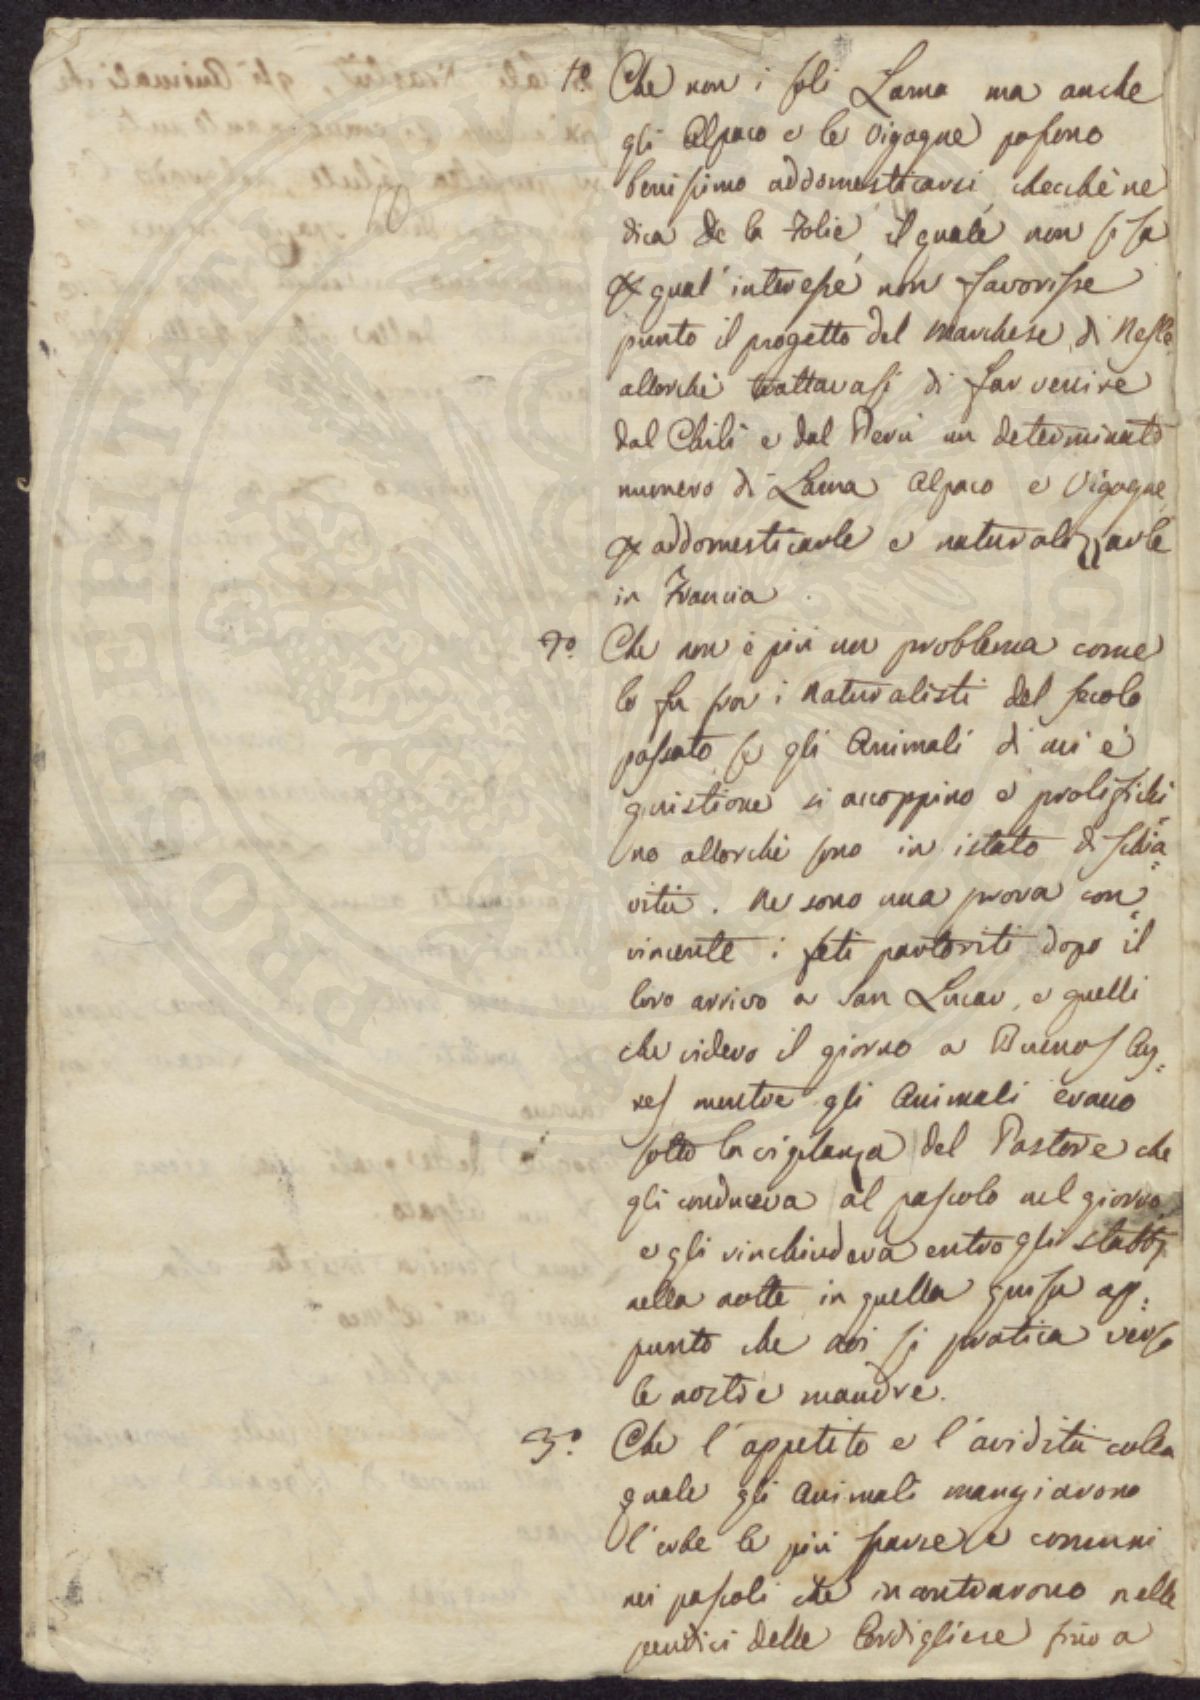 1.o Che non i soli Lama ma anche
gli Alpaco e le Vigogne possono
benissimo addomesticarsi, checchè ne
dica de la Folie, il quale non si sa
per qual'interesse non favorisse
punto il progetto del Marchese di Nesle
allorchè trattavasi di far venire
dal Chilì e dal Perù un determinato
numero di Lama Alpaco e Vigogne
per addomesticarle e naturalizzarle
in Francia.
2.o Che non è più un problema come
lo fu fra i Naturalisti del secolo
passato, se gli Animali di cui è
quistione si accoppino e prolifichi=
no allorchè sono in istato di schia=
vitù. Ne sono una prova con=
vincente i feti partoriti dopo il
loro arrivo a San Lucar, e quelli
che videro il giorno a Buenos Ay=
res mentre gli Animali erano
sotto la vigilanza del Pastore che
gli conduceva al pascolo nel giorno
e gli rinchiudeva entro gli stabbj
nella notte in quella guisa ap=
punto che noi si pratica verso
le nostre mandre.
3.o Che l'appetito e l'avidità colla
quale gli Animali mangiarono
l'erbe le più scarse e comuni
nei pascoli che incontrarono nelle
pendici delle Cordigliere fino a
PROSPERITAS PUBLICA